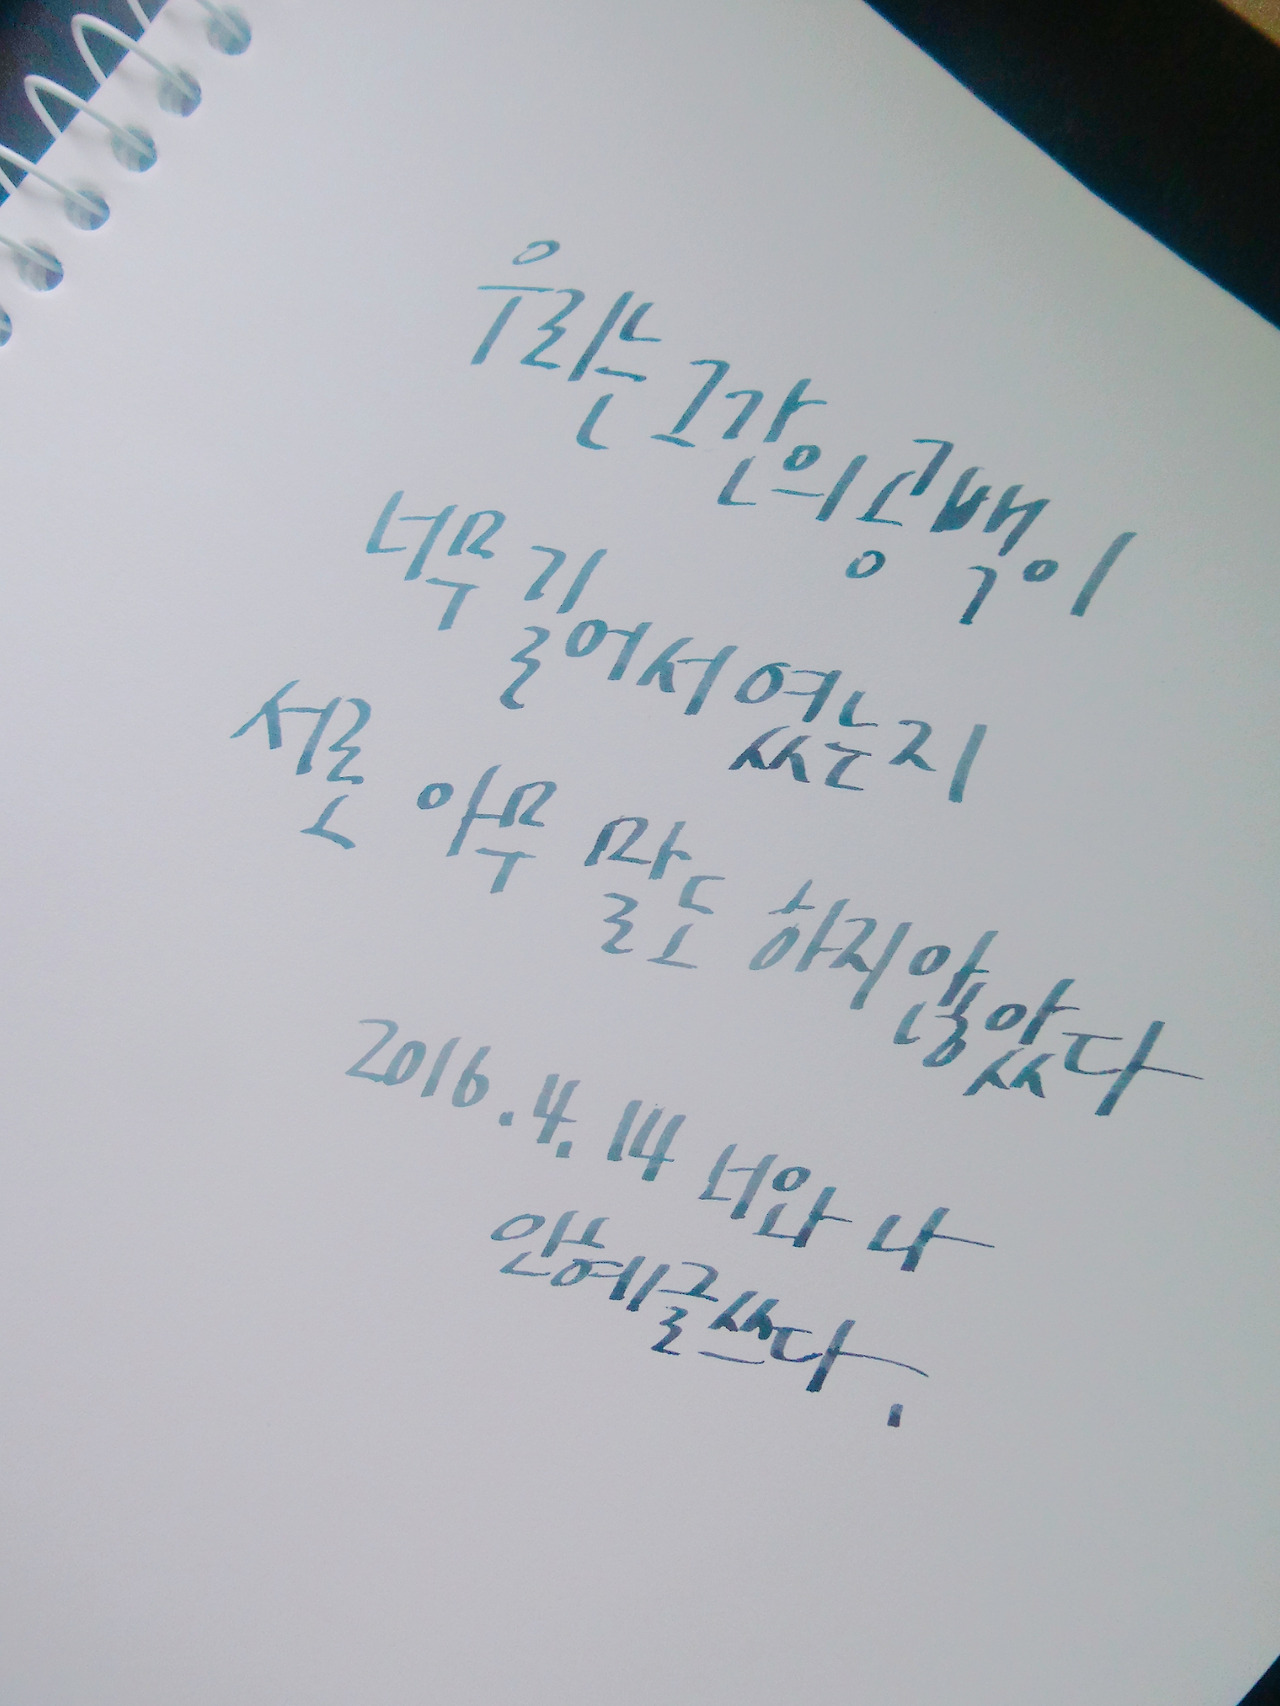 우리는 그간의 공백이
너무 길어서였는지
서로 아무 말도 하지 않았다
2016.4.14 너와 나
안예글쓰다.